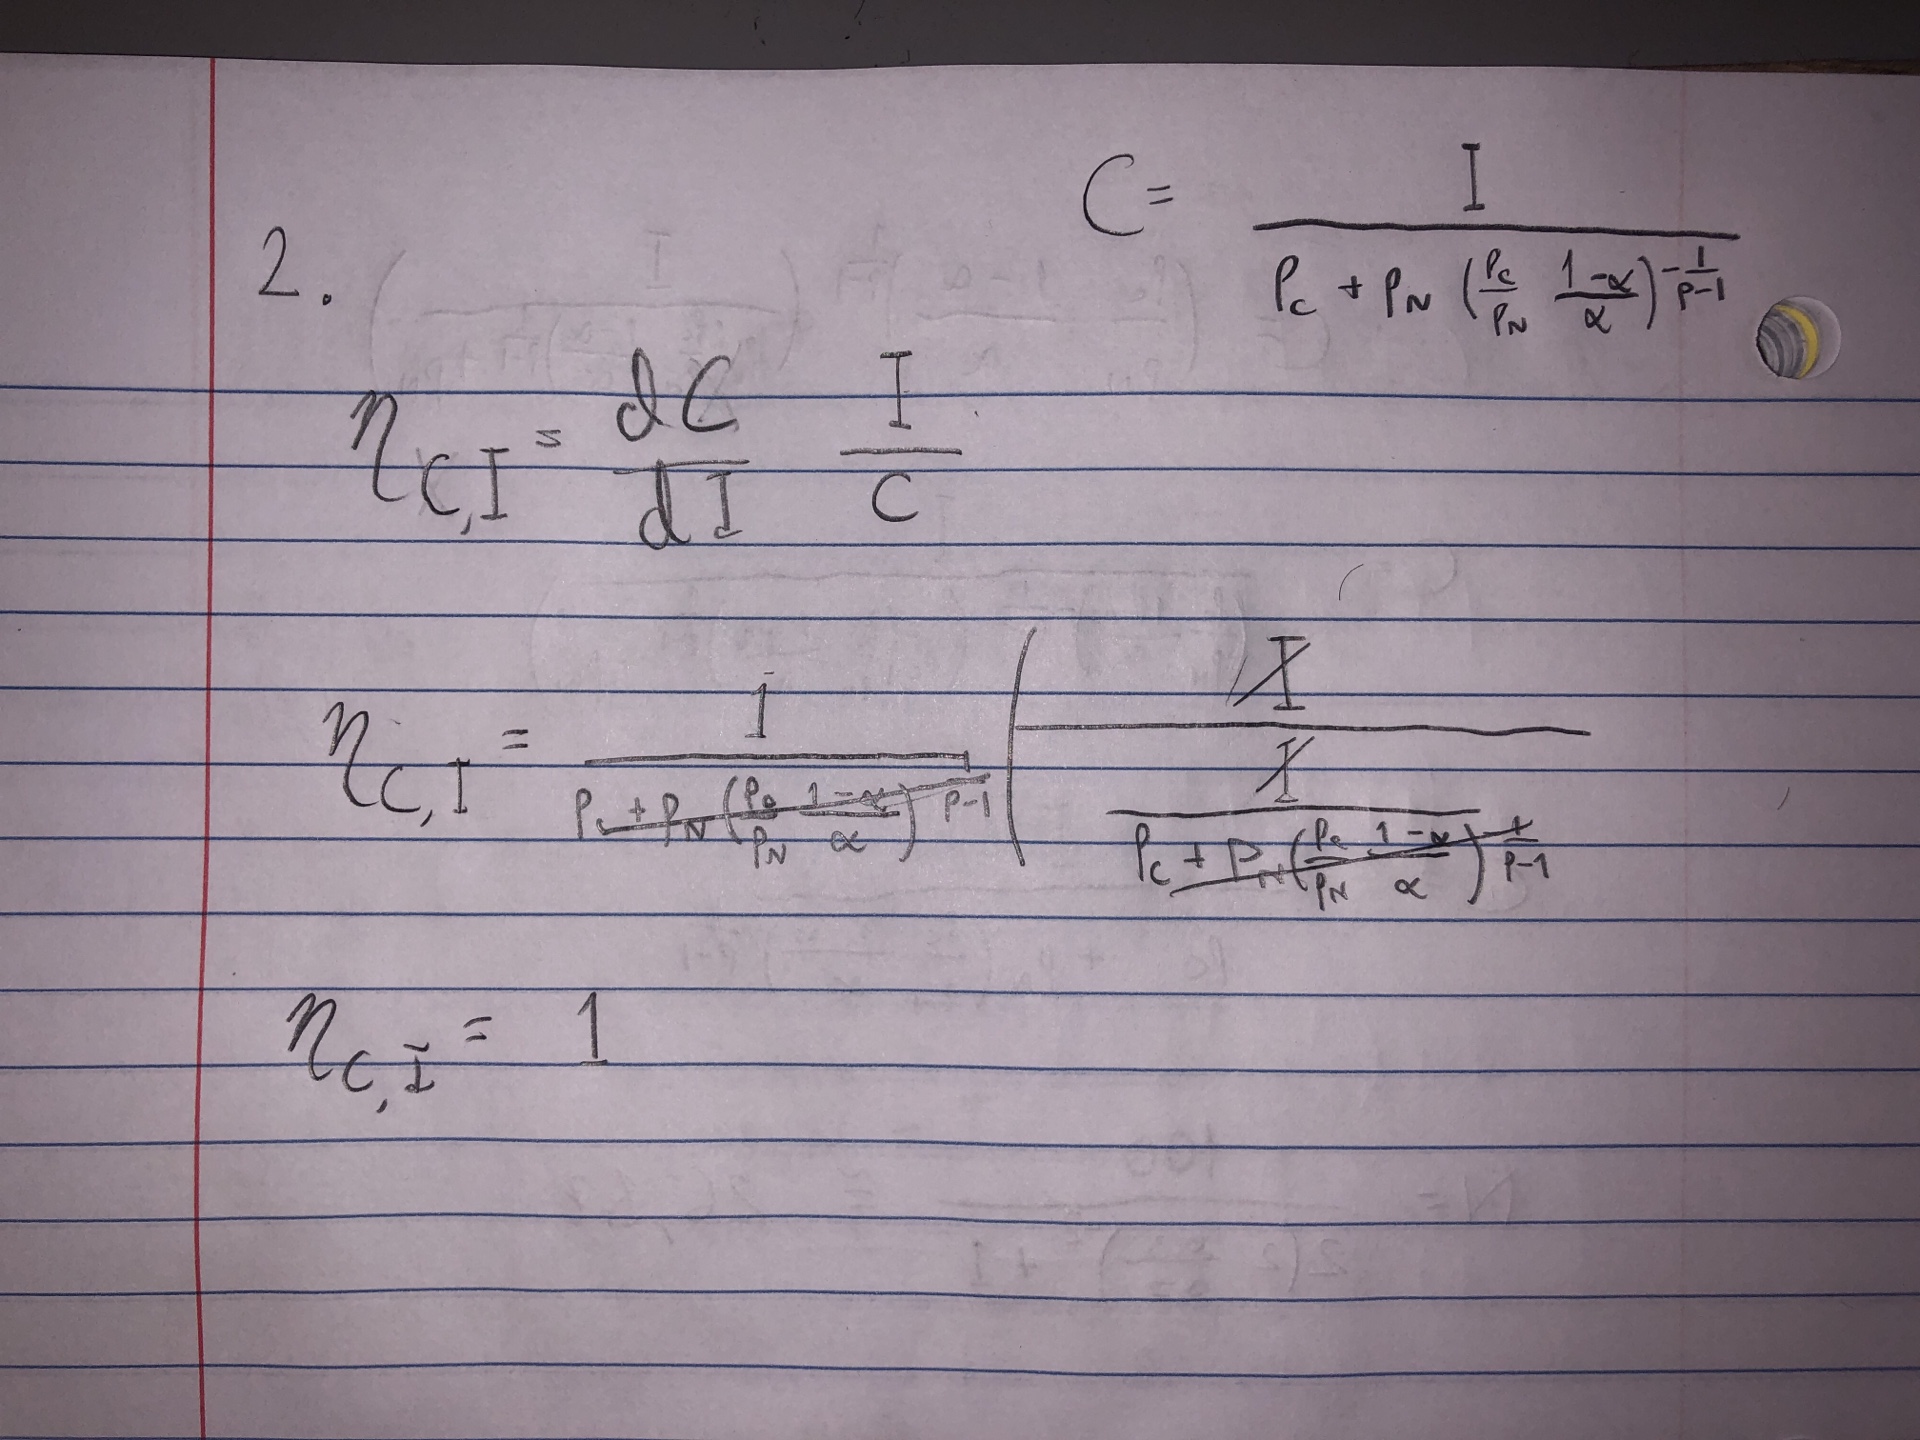 C = I / (P_C + P_N (P_C/P_N 1-α/α)^(-1/(ρ-1)))
2.
η_C,I = dC/dI I/C
η_C,I = 1 / (P_C + P_N (P_C/P_N 1-α/α)^(1/(ρ-1))) ( I / (I / (P_C + P_N (P_C/P_N 1-α/α)^(-1/(ρ-1))))
η_C,I = 1